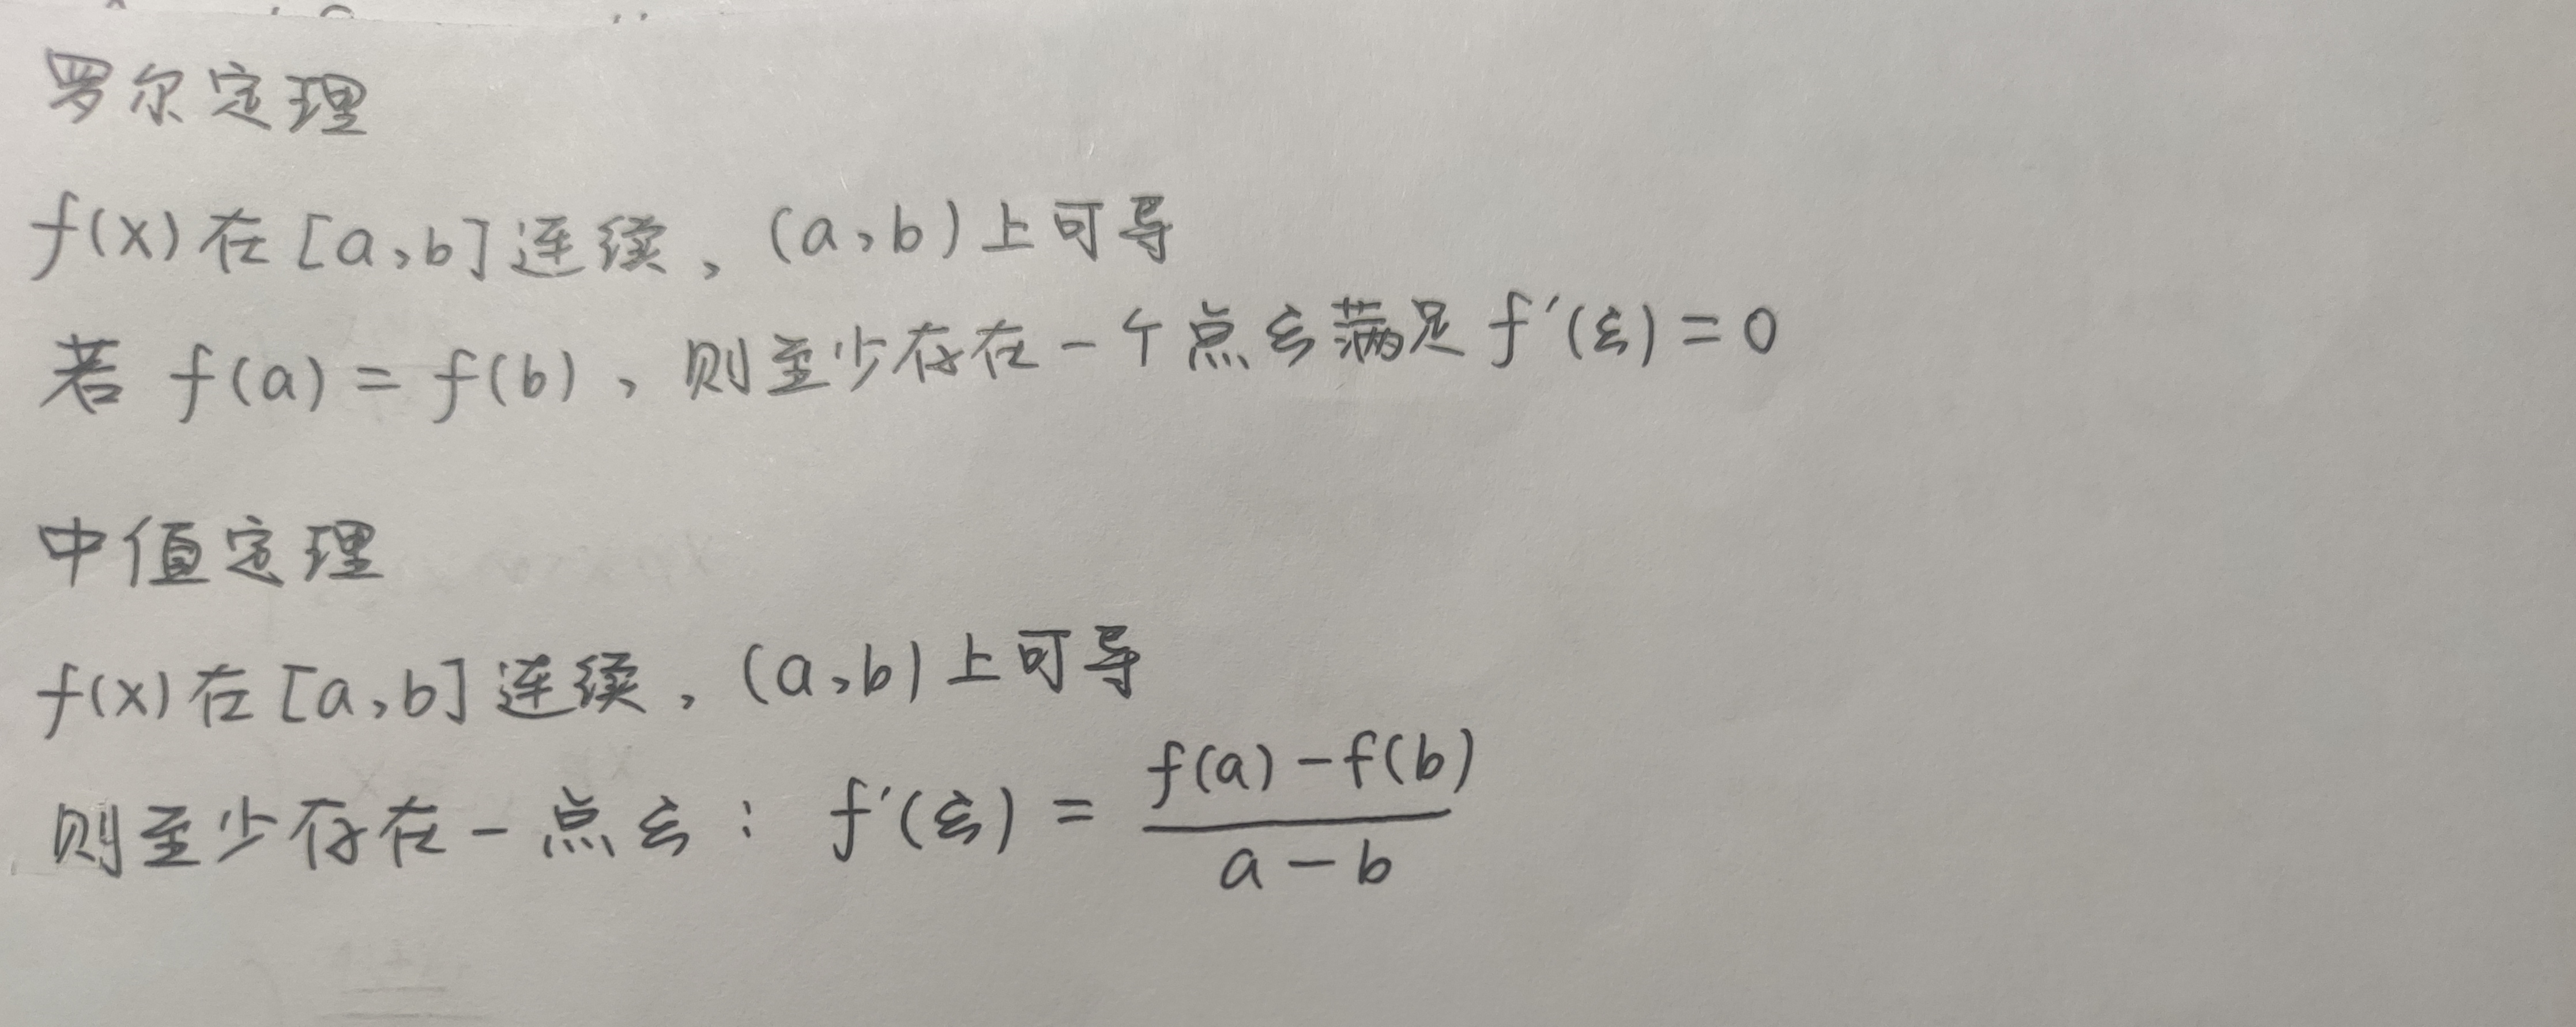 罗尔定理
f(x) 在 [a,b] 连续, (a,b) 上可导
若 f(a) = f(b), 则至少存在一个点ξ满足 f'(ξ) = 0
中值定理
f(x) 在 [a,b] 连续, (a,b) 上可导
则至少存在一点ξ: f'(ξ) = \frac{f(a) - f(b)}{a - b}